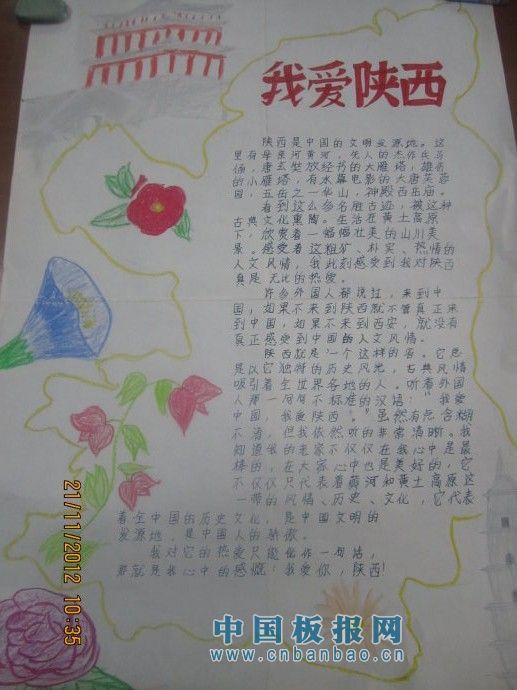 我爱陕西
陕西是中国的文明发源地。这
里有母亲河黄河，先人的杰作兵马
俑，唐玄奘放经书的大雁塔，雄奇
的小雁塔，有水幕电影的大唐芙蓉
园，五岳之一华山，神殿西岳庙。
看到这么多名胜古迹，被这种
古典文化熏陶。生活在黄土高原
下，欣赏着一幅幅壮美的山川美
景，感受着这粗矿、朴实、热情的
人文风情，我此刻感受到我对陕西
真是无比的热爱。
许多外国人都说过，来到中
国，如果不来到陕西就不算真正来
到中国，如果不来到西安，就没有
真正感受到中国的人文风情。
陕西就是一个这样的省。它总
是以它独特的历史风光，古典风情
吸引着全世界各地的人。听着外国
人那一句句不标准的汉语："我爱
中国，我爱陕西。"虽然有点含糊
不清，但我依然听的非常清晰。我
知道我的老家不仅仅在我心中是最
棒的，在大家心中也是美好的，它
不仅仅只代表着黄河和黄土高原这
一带的风情、历史、文化，它代表
着全中国的历史文化，是中国文明的
发源地，是中国人的骄傲。
我对它的热爱只能化作一句话，
那就是我心中的感慨：我爱你，陕西！
21/11/2012 10:35
中国板报网
www.cnbanbao.cn